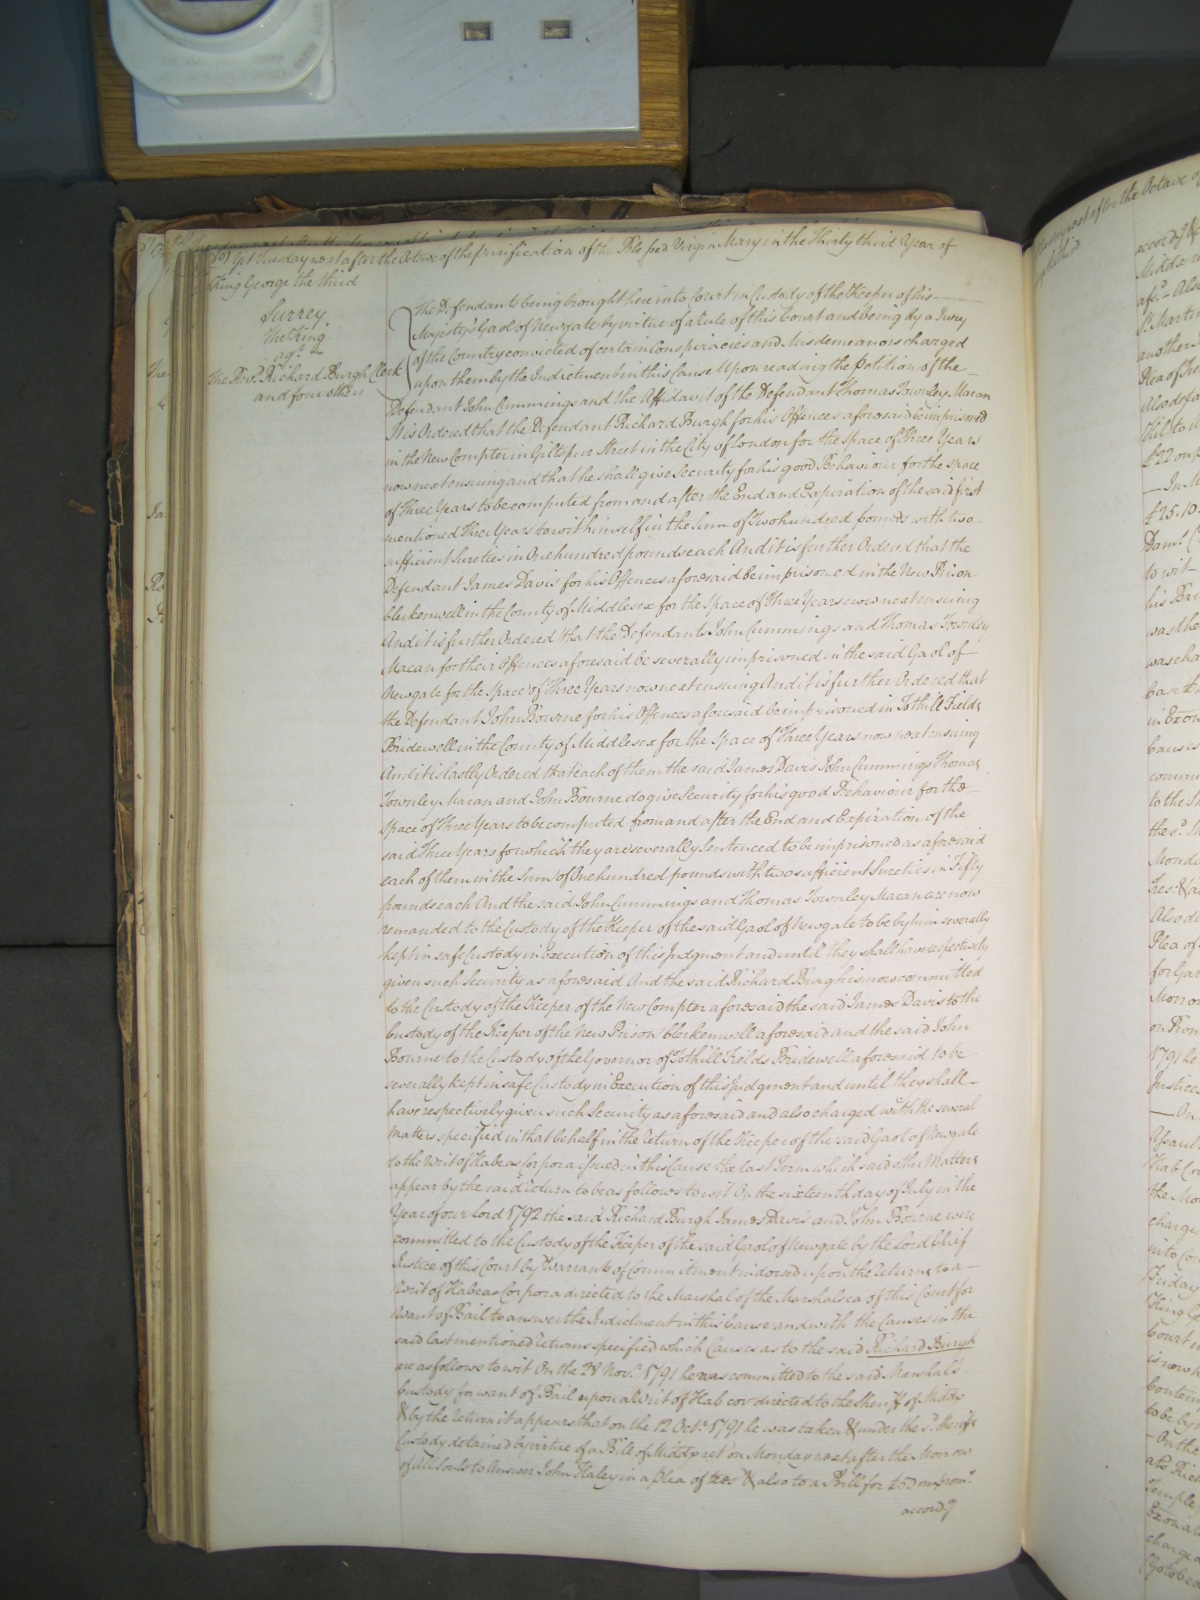 Yet Tuesday next after the Octave of the Purification of the Blessed Virgin Mary in the Thirty third Year of
King George the third
Surrey
The King
agt
The Revd. Richard Burgh Clerk
and four others
The Defendants being brought here into Court in Custody of the Keeper of his
Majesty's Gaol of Newgate by virtue of a Rule of this Court and being by a Jury
of the Country convicted of certain Conspiracies and Misdemeanors charged
upon them by the Indictment in this Cause Upon reading the Petition of the
Defendant John Cummings and the Affidavit of the Defendant Thomas Townley Macan
It is Ordered that the Defendant Richard Burgh for his Offences aforesaid be imprisoned
in the New Compter in Giltspur Street in the City of London for the space of Three Years
now next ensuing and that he shall give Security for his good Behaviour for the space
of Three Years to be computed from and after the End and Expiration of the said first
mentioned Three Years to wit himself in the Sum of Two hundred pounds with two
sufficient Sureties in One hundred pounds each And it is further Ordered that the
Defendant James Davis for his Offences aforesaid be imprisoned in the New Prison
Clerkenwell in the County of Middlesex for the Space of Three Years now next ensuing
And it is further Ordered that the Defendants John Cummings and Thomas Townley
Macan for their Offences aforesaid be severally imprisoned in the said Gaol of
Newgate for the Space of Three Years now next ensuing And it is further Ordered that
the Defendant John Bourne for his Offences aforesaid be imprisoned in Tothill Fields
Bridewell in the County of Middlesex for the Space of Three Years now next ensuing
And it is lastly Ordered that each of them the said James Davis John Cummings Thomas
Townley Macan and John Bourne do give Security for his good Behaviour for the
Space of Three Years to be computed from and after the End and Expiration of the
said Three Years for which they are severally Sentenced to be imprisoned as aforesaid
each of them in the Sum of One hundred pounds with two sufficient Sureties in Fifty
pounds each And the said John Cummings and Thomas Townley Macan are now
remanded to the Custody of the Keeper of the said Gaol of Newgate to be by him severally
kept in safe Custody in Execution of this Judgment and until they shall have respectively
given such Security as aforesaid And the said Richard Burgh is now committed
to the Custody of the Keeper of the New Compter aforesaid the said James Davis to the
Custody of the Keeper of the New Prison Clerkenwell aforesaid and the said John
Bourne to the Custody of the Governor of Tothill Fields Bridewell aforesaid to be
severally kept in safe Custody in Execution of this Judgment and until they shall
have respectively given such Security as aforesaid and also charged with the several
Matters specified in that behalf in the Return of the Keeper of the said Gaol of Newgate
to the Writ of Habeas Corpora issued in this Cause the last Term which said other Matters
appear by the said Return to be as follows to wit On the sixteenth day of July in the
Year of our Lord 1792 the said Richard Burgh James Davis and John Bourne were
committed to the Custody of the Keeper of the said Gaol of Newgate by the Lord Chief
Justice of this Court by Warrants of Commitment indorsed upon the Returns to a
Writ of Habeas Corpora directed to the Marshal of the Marshalsea of this Court for
Want of Bail to answer the Indictment in this Cause and with the Causes in the
said last mentioned Returns specified which Causes as to the said Richard Burgh
are as follows to wit On the 28 Novr. 1791 he was committed to the said Marshal's
Custody for want of Bail upon a Writ of Hab cor directed to the Sheriff of Middx
& by the Return it appears that on the 12 Octr. 1791 he was taken & under the sd. Sheriffs
Custody detained by virtue of a Bill of Middx ret on Monday next after the Morrow
of All Souls to Answer John Haley in a Plea of tres & also to a Bill for £50 on prom:
accordg